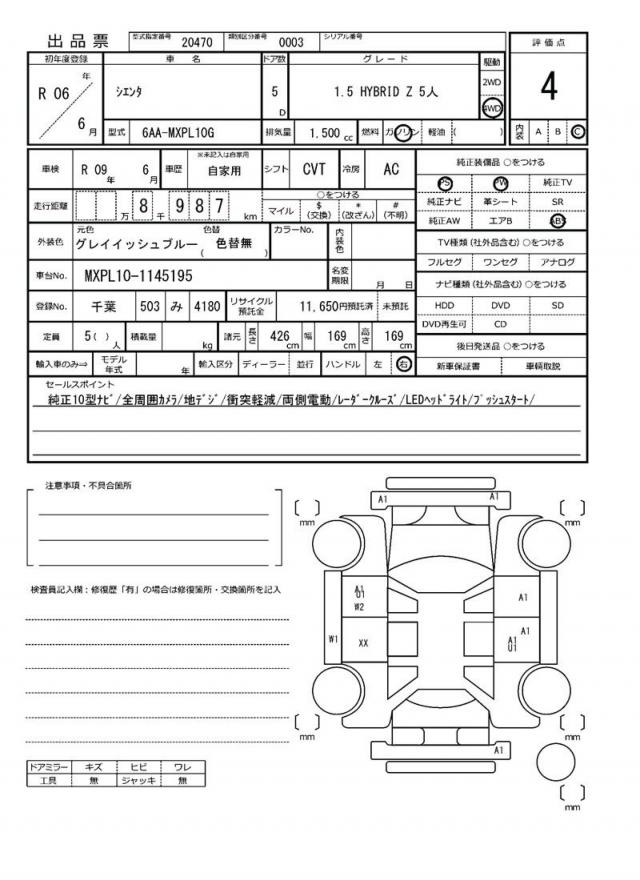 出品票 型式指定番号 20470 類別区分番号 0003 シリアル番号
評価点
4
初年度登録 車名 ドア数 グレード 駆動
R 06 年 6 月
シエンタ 5 D 1.5 HYBRID Z 5人 2WD 4WD
型式 6AA-MXPL10G 排気量 1,500 cc 燃料 ガソリン 軽油 ( )
内装 A B C
車検 R 09 年 6 月 車歴 ※未記入は自家用 自家用 シフト CVT 冷房 AC
走行距離 万 8 千 9 8 7 km
○をつける
マイル $ (交換) * (改ざん) # (不明)
外装色 元色 グレイイッシュブルー 色替 ( 色替無 ) カラーNo. 内装色
車台No. MXPL10-1145195 名変期限 月 日
登録No. 千葉 503 み 4180 リサイクル預託金 11,650円預託済 未預託
定員 5( ) 人 積載量 kg 諸元 長さ 426 cm 幅 169 cm 高さ 169 cm
輸入車のみ⇒ モデル年式 年 輸入区分 ディーラー 並行 ハンドル 左 右
純正装備品 ○をつける
PS PW 純正TV
純正ナビ 革シート SR
純正AW エアB ABS
TV種類 (社外品含む) ○をつける
フルセグ ワンセグ アナログ
ナビ種類 (社外品含む) ○をつける
HDD DVD SD
DVD再生可 CD
後日発送品 ○をつける
新車保証書 車輌取説
セールスポイント
純正10型ナビ/全周囲カメラ/地デジ/衝突軽減/両側電動/レーダークルーズ/LEDヘッドライト/プッシュスタート/
注意事項・不具合箇所
検査員記入欄：修復歴「有」の場合は修復箇所・交換箇所を記入
ドアミラー キズ ヒビ ワレ
工具 無 ジャッキ 無
A1 A1
mm mm
A1
U1
W2
A1
W1
XX
A1
A1
U1
mm mm
A1
mm